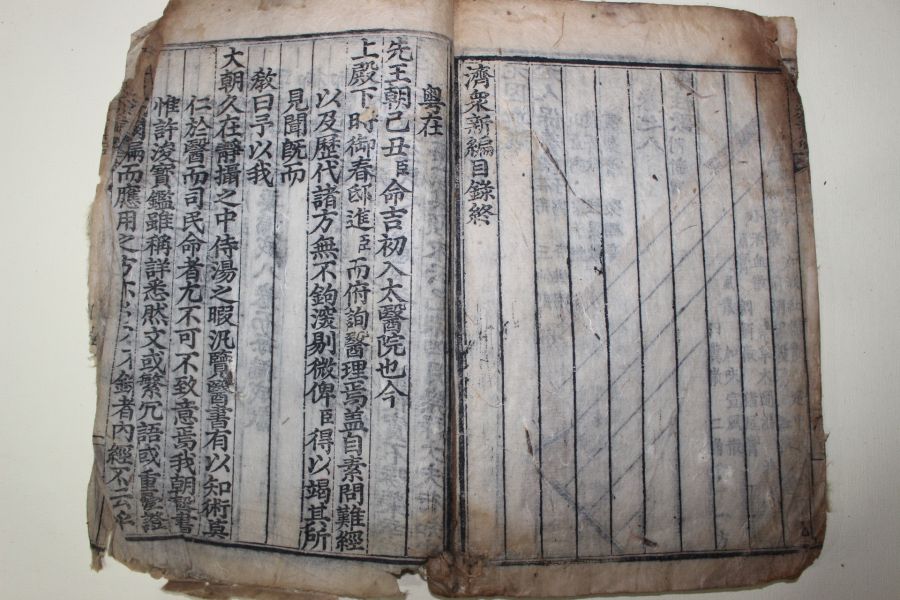 濟衆新編目錄終
粤在
先王朝己丑臣命吉初入太醫院也今
上殿下時御春邸進臣而俯詢醫理焉盖自素問難經
以及歷代諸方無不鉤深剔微俾臣得以竭其所
見聞旣而
敎曰予以我
大朝久在靜攝之中侍湯之暇汎覽醫書有以知術莫
仁於醫而司民命者尤不可不致意焉我朝醫書
惟許浚寶鑑雖稱詳悉然文或繁冗語或重疊證
漏而應用之方亦者內經不云乎